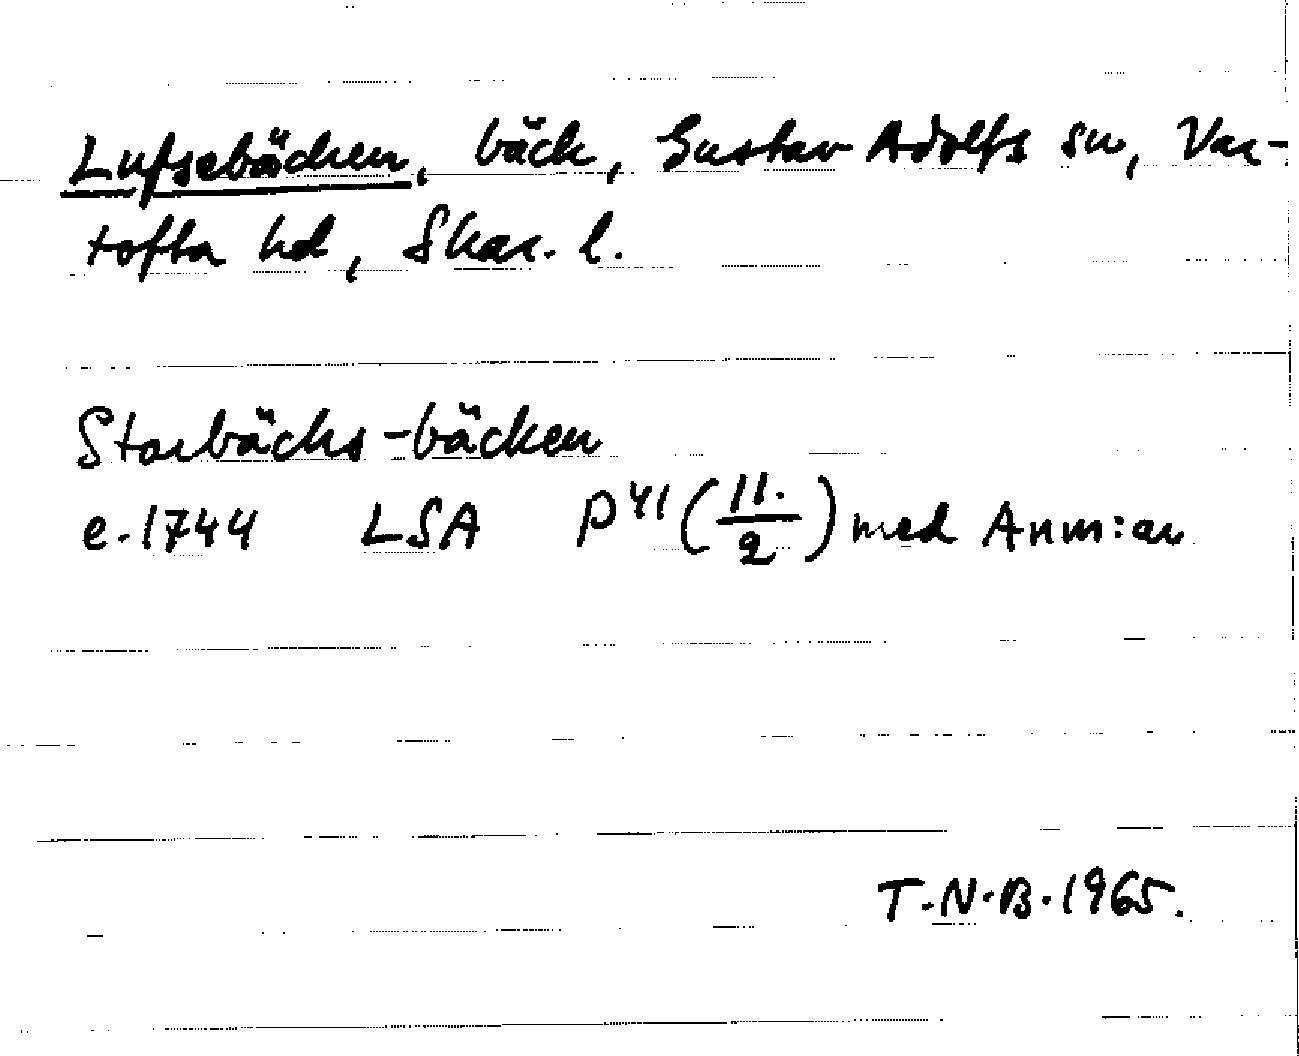 Lufsebäcken, bäck, Gustav Adolfs sn, Var-
tofta hd, Skar. l.
Starbäcks-bäcken
e. 1744 LSA P41 (11./2) med Anm:ar
T.N.B. 1965.